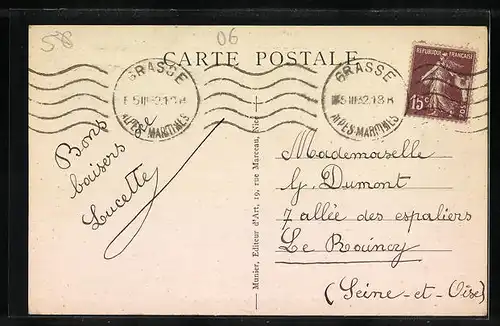 58
06
CARTE POSTALE
GRASSE
5 III 32 18 H
ALPES-MARITIMES
GRASSE
5 III 32 18 H
ALPES-MARITIMES
REPUBLIQUE FRANÇAISE
15c
Bons
baisers de
Lucette
Munier, Editeur d'Art, 19, rue Marceau, Nice
Mademoiselle
G. Dumont
7 allée des espaliers
Le Raincy
(Seine-et-Oise)